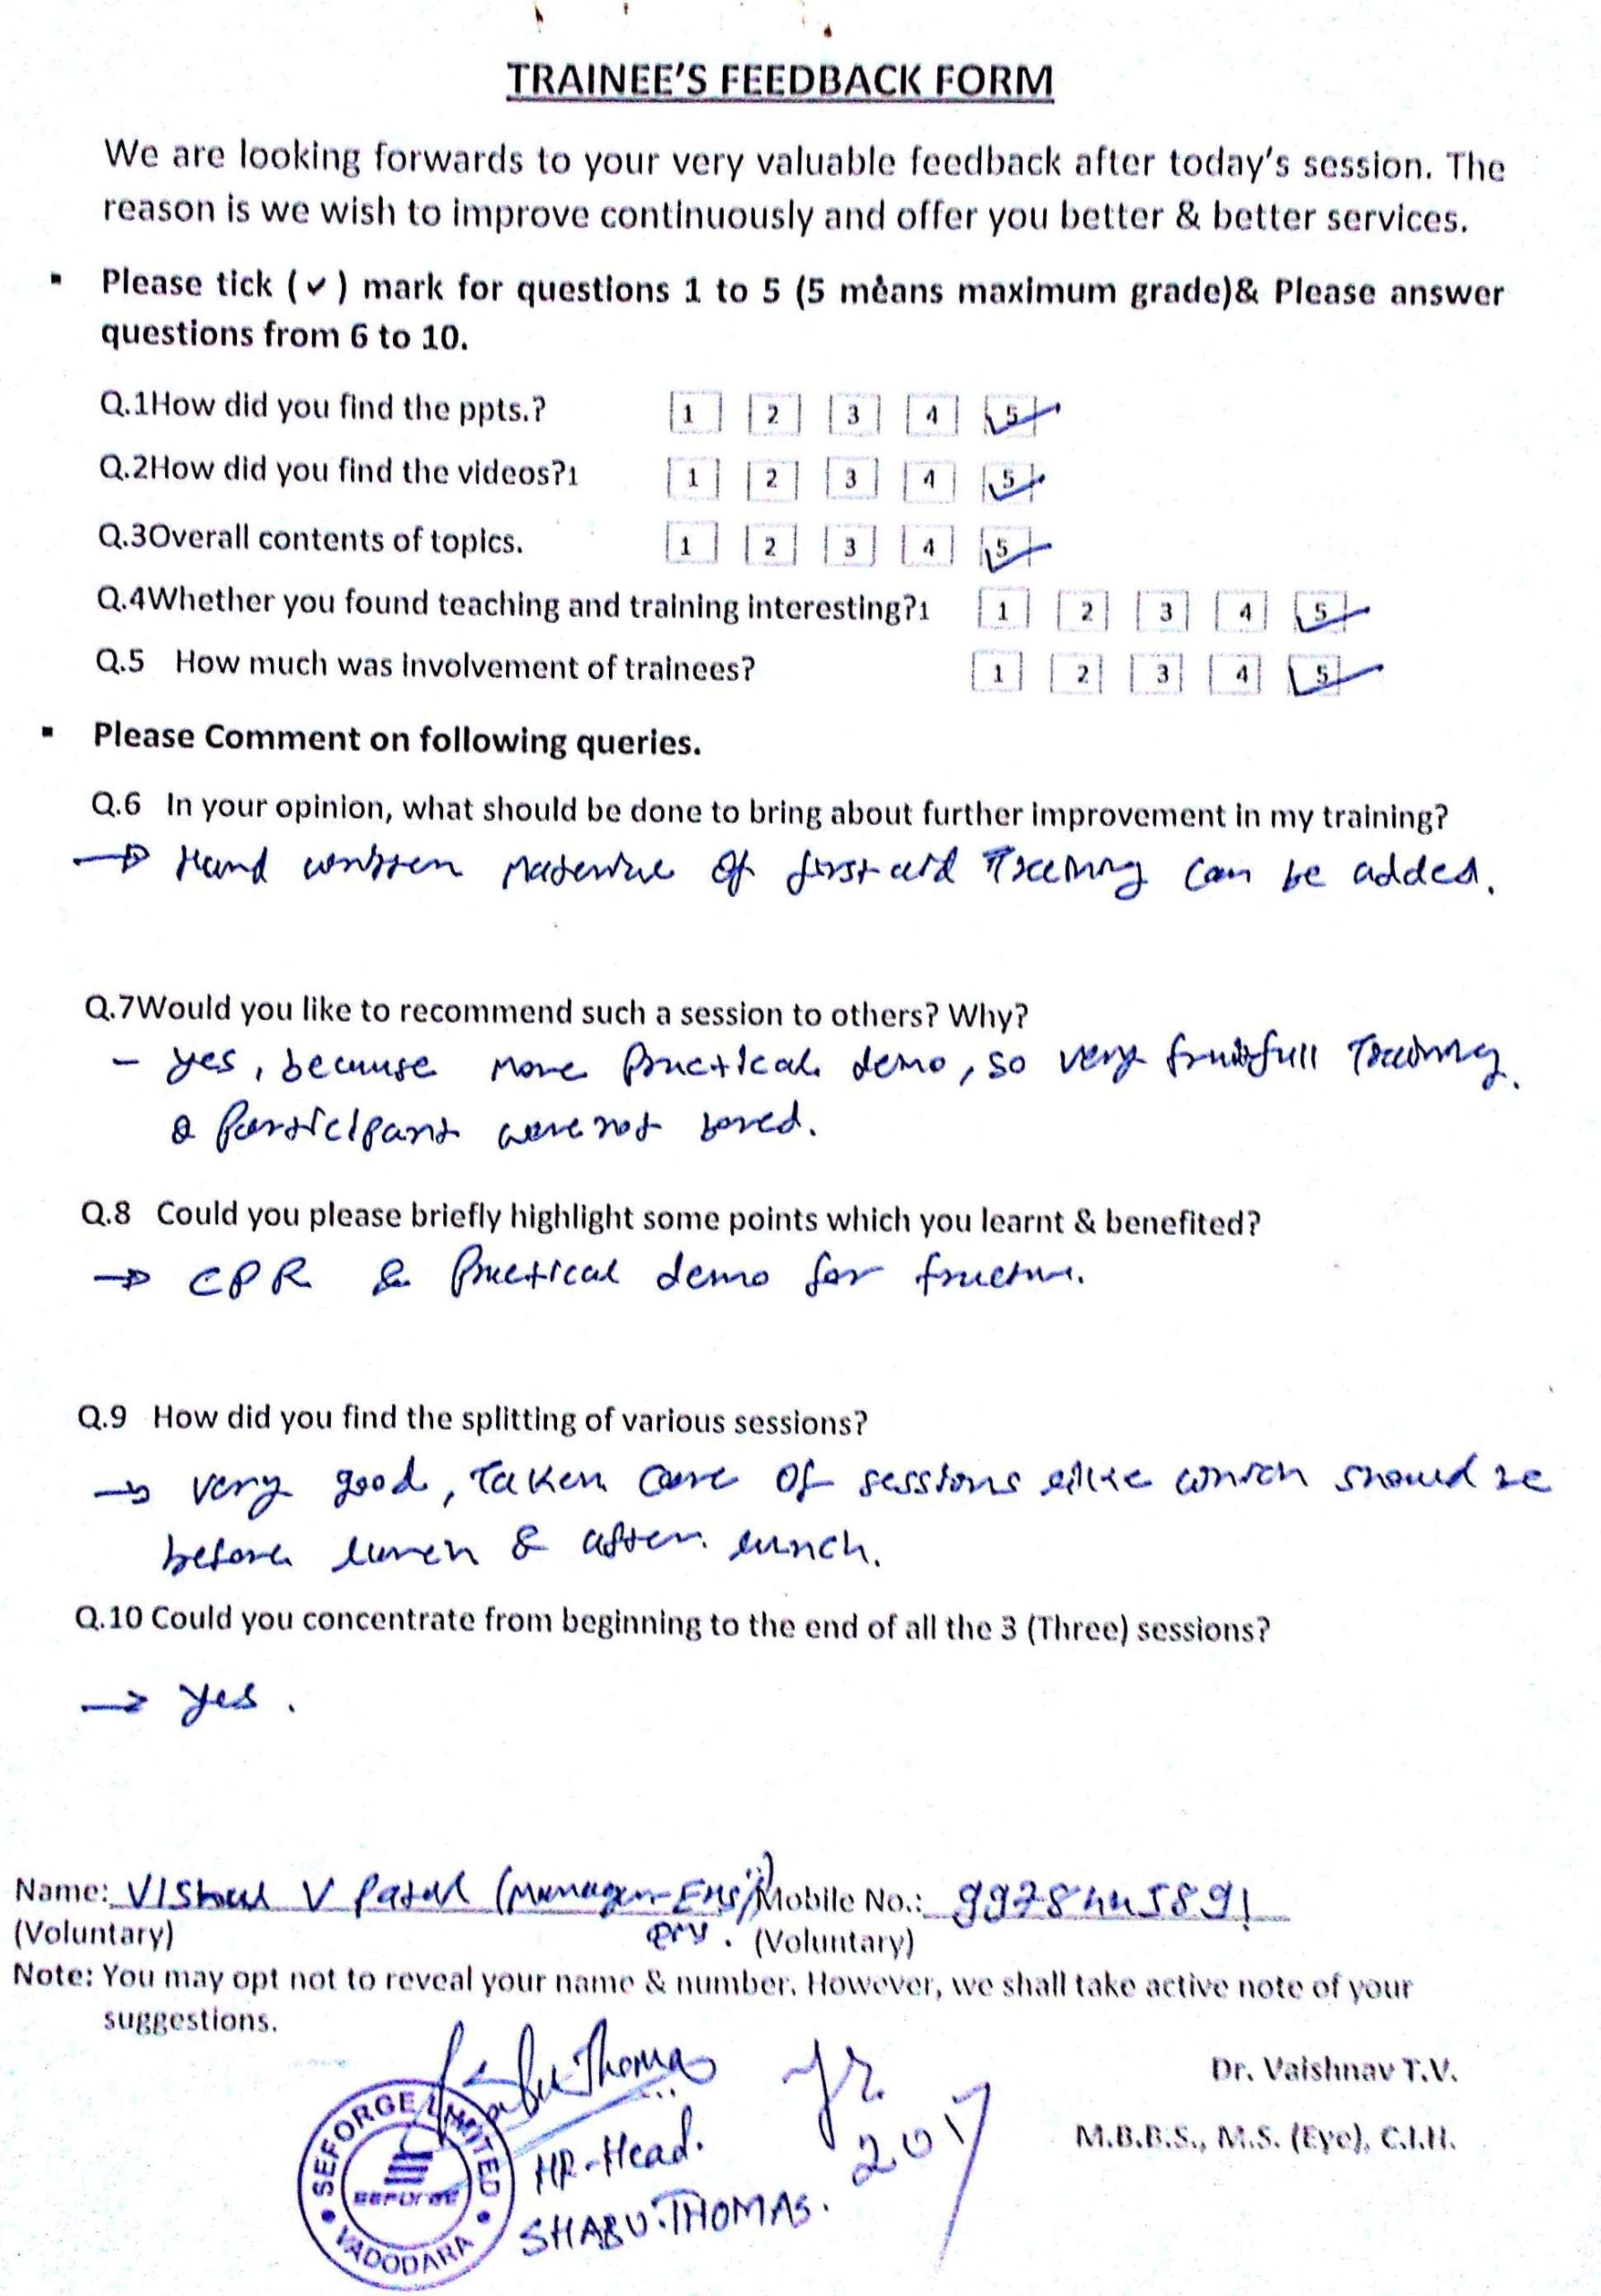 TRAINEE'S FEEDBACK FORM
We are looking forwards to your very valuable feedback after today's session. The
reason is we wish to improve continuously and offer you better & better services.
▪ Please tick (✓) mark for questions 1 to 5 (5 means maximum grade)& Please answer
questions from 6 to 10.
Q.1How did you find the ppts.? 1 2 3 4 5 ✓
Q.2How did you find the videos?1 1 2 3 4 5 ✓
Q.3Overall contents of topics. 1 2 3 4 5 ✓
Q.4Whether you found teaching and training interesting?1 1 2 3 4 5 ✓
Q.5 How much was involvement of trainees? 1 2 3 4 5 ✓
▪ Please Comment on following queries.
Q.6 In your opinion, what should be done to bring about further improvement in my training?
→ Hand written material of first aid Training can be added.
Q.7Would you like to recommend such a session to others? Why?
- yes, because more practical demo, so very fruitfull Training.
& participant were not bored.
Q.8 Could you please briefly highlight some points which you learnt & benefited?
→ CPR & Practical demo for fracture.
Q.9 How did you find the splitting of various sessions?
→ very good, taken care of sessions which should be
before lunch & after lunch.
Q.10 Could you concentrate from beginning to the end of all the 3 (Three) sessions?
→ yes.
Name: Vishal V Patel (Manager- Mobile No.:
(Voluntary) (Voluntary)
Note: You may opt not to reveal your name & number. However, we shall take active note of your
suggestions.
Shabu Thomas
Dr. Vaishnav T.V.
M.B.B.S., M.S. (Eye), C.I.H.
HR-Head.
SHABU.THOMAS.
2017
SEFORGE LIMITED
SEFORGE
VADODARA